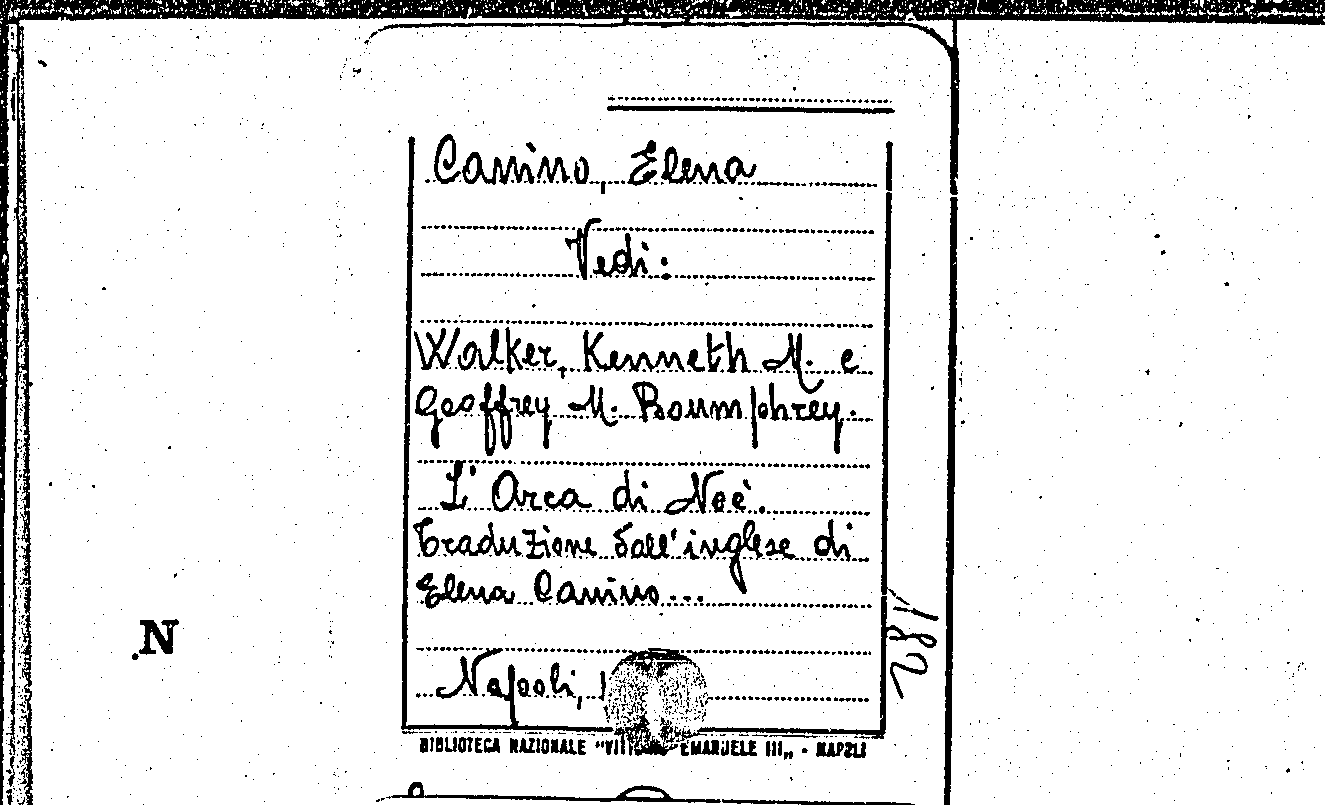 Canino, Elena
Vedi:
Walker, Kenneth M. e
Geoffrey M. Boumphrey.
L'Arca di Noè.
Traduzione dall'inglese di
Elena Canino...
Napoli, 1
BIBLIOTECA NAZIONALE "VITTORIO EMANUELE III„ - NAPOLI
N